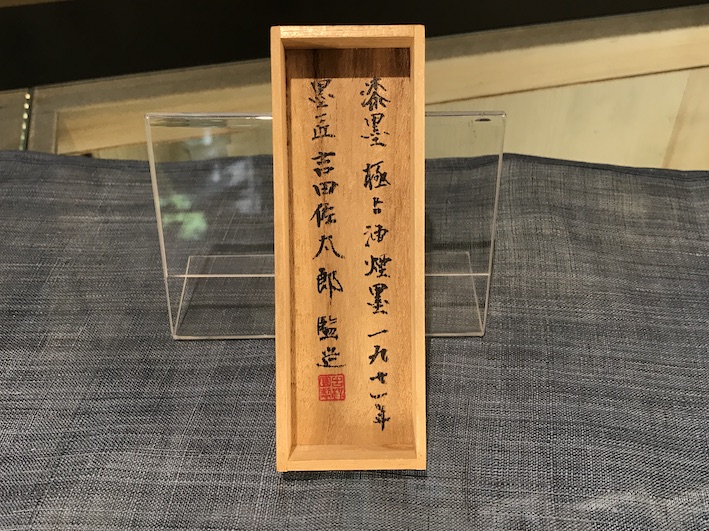 漆墨 極上油煙墨 一九七四年
墨匠 吉田佐太郎 監造